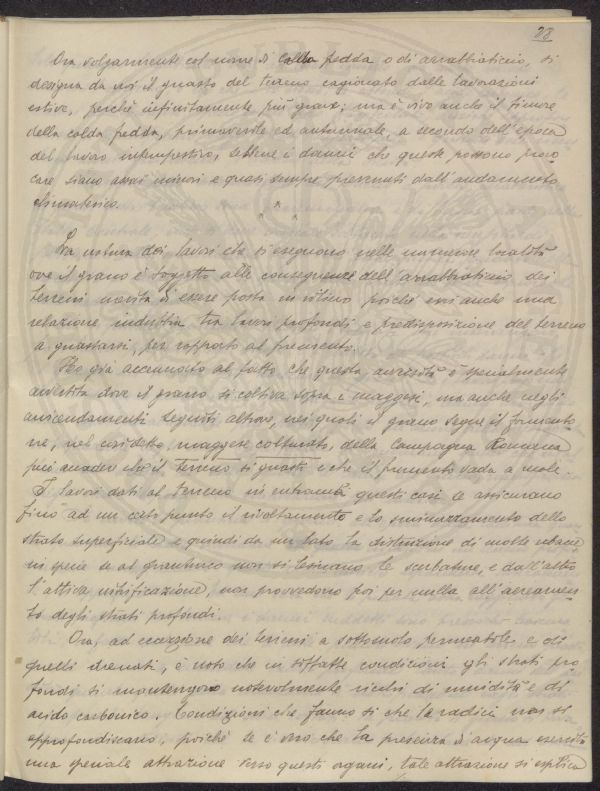 28
Ora volgarmente col nome di calda fredda o di arrabbiaticcio, si
designa da noi il guasto del terreno cagionato dalle lavorazioni
estive, perchè infinitamente più grave; ma è vivo anche il timore
della calda fredda, primaverile ed autunnale, a secondo dell'epoca
del lavoro intempestivo, sebbene i danni che queste possono provo
care siano assai minori e quasi sempre prevenuti dall'andamento
climaterico.
* * *
La natura dei lavori che si eseguono nelle numerose località
ove il grano è soggetto alle conseguenze dell'arrabbiaticcio dei
terreni merita di essere posta in rilievo poichè evvi anche una
relazione indubbia tra lavori profondi e predisposizione del terreno
a guastarsi, per rapporto al frumento.
Ho già accennato al fatto che questa avversità è specialmente
avvertita dove il grano si coltiva sopra i maggesi, ma anche negli
avvicendamenti seguiti altrove, nei quali il grano segue il frumento
ne, nel cosidetto, maggese colturato, della Campagna Romana
può accader che il terreno si guasti e che il frumento vada a male.
I lavori dati al terreno in entrambi questi casi se assicurano
fino ad un certo punto il rivoltamento e lo sminuzzamento dello
strato superficiale e quindi da un lato la distruzione di molte erbacce,
in specie se al granturco non si lesinano le sarchiature, e dall'altro
l'attiva nitrificazione, non provvedono poi per nulla all'aereamen
to degli strati profondi.
Ora, ad eccezione dei terreni a sottosuolo permeabile e di
quelli drenati, è noto che in siffatte condizioni gli strati pro
fondi si mantengono notevolmente ricchi di umidità e di
acido carbonico. Condizioni che fanno sì che le radici non si
approfondiscano, poichè se è vero che la presenza d'acqua esercita
una speciale attrazione verso questi organi, tale attrazione si esplica